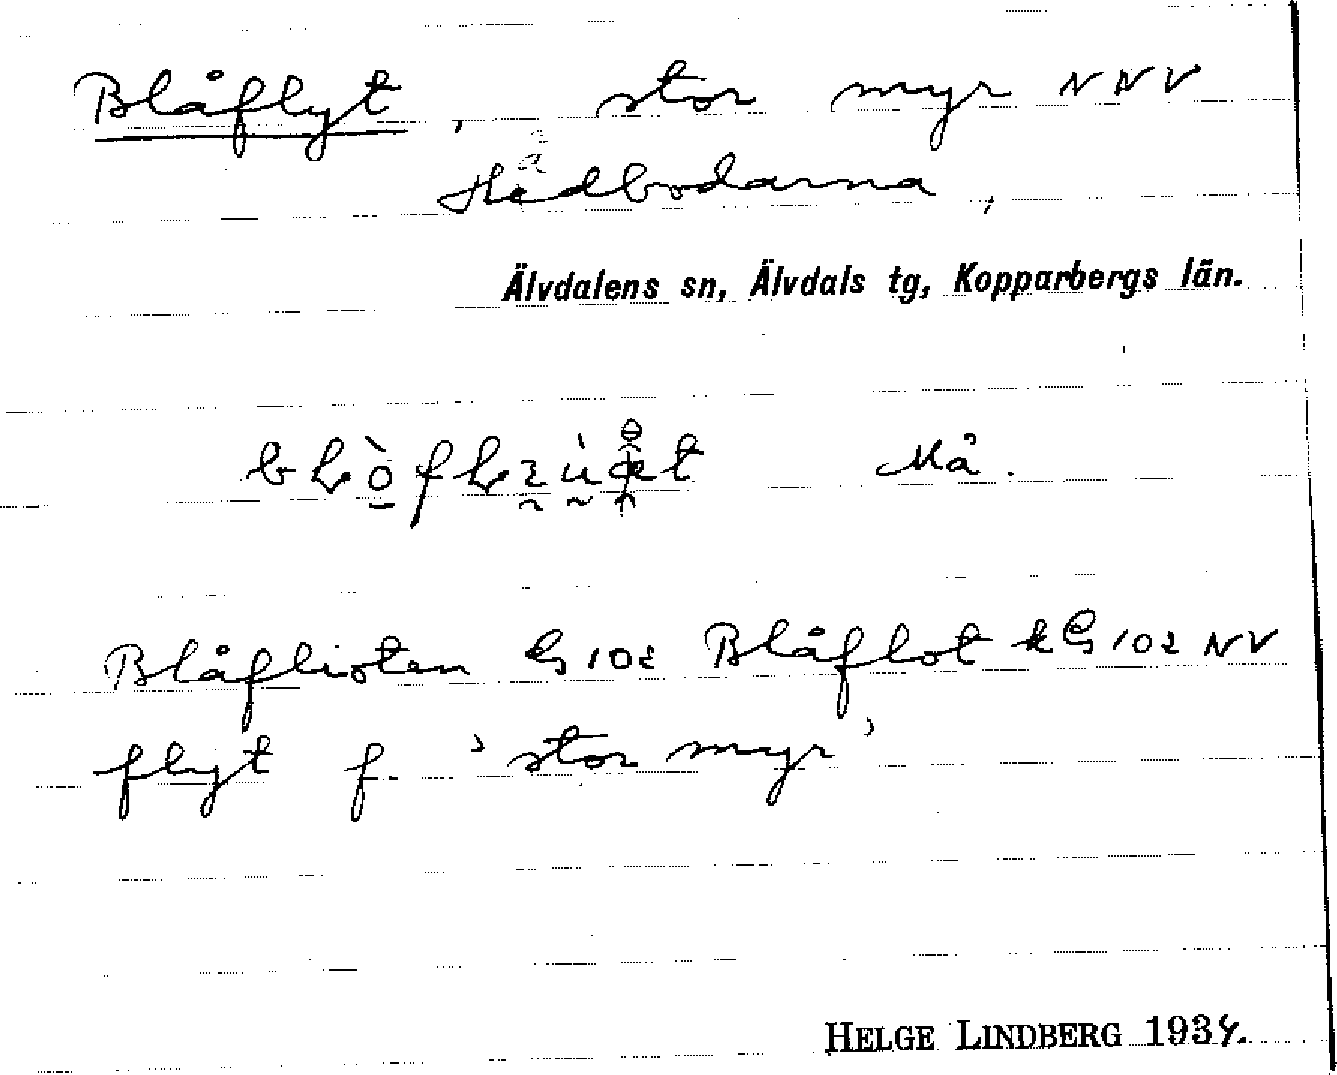 Blåflyt, stor myr NNV
Hedbodarna,
Älvdalens sn, Älvdals tg, Kopparbergs län.
Må.
Blåflioten G 102 Blåflot k G 102 NV
flyt f. 'stor myr'
HELGE LINDBERG 1934.